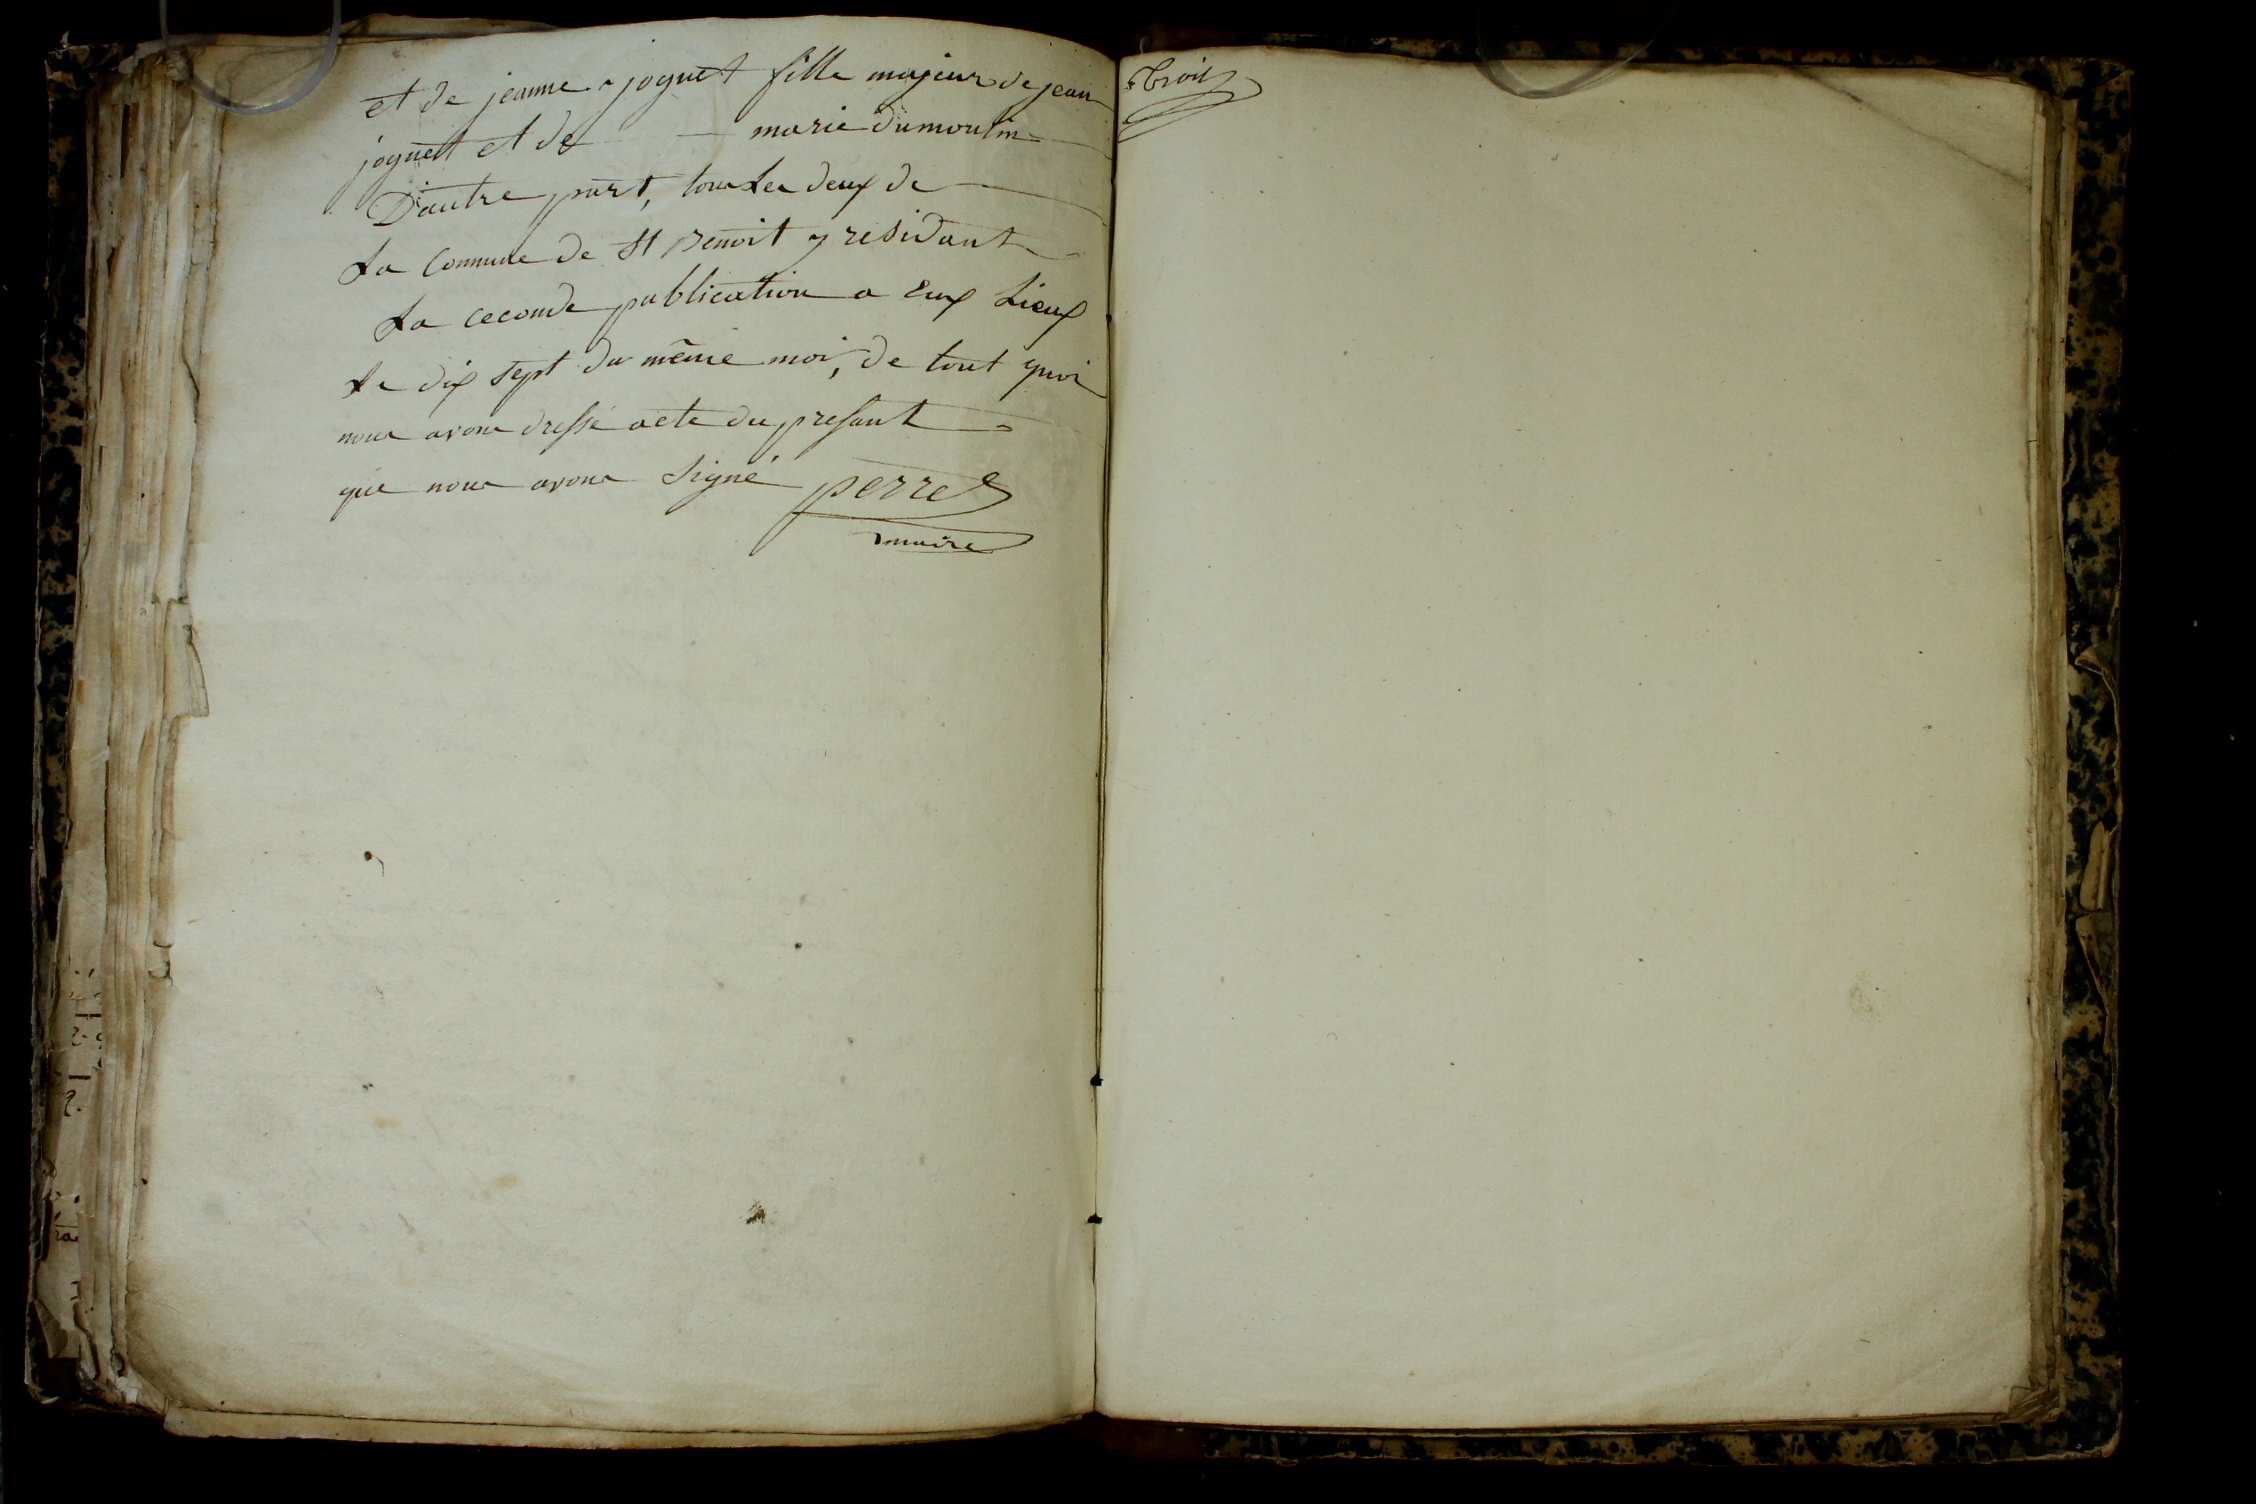 et de jeanne joguet fille majeur de jean
joguet et de marie dumoulin
D'autre part, tous les deux de
La Commune de St Benoit y residant
La ceconde publication a Eux Lieux
Le dix sept du même mois, de tout quoi
nous avons dressé acte du presant
que nous avons Signé perret
maire